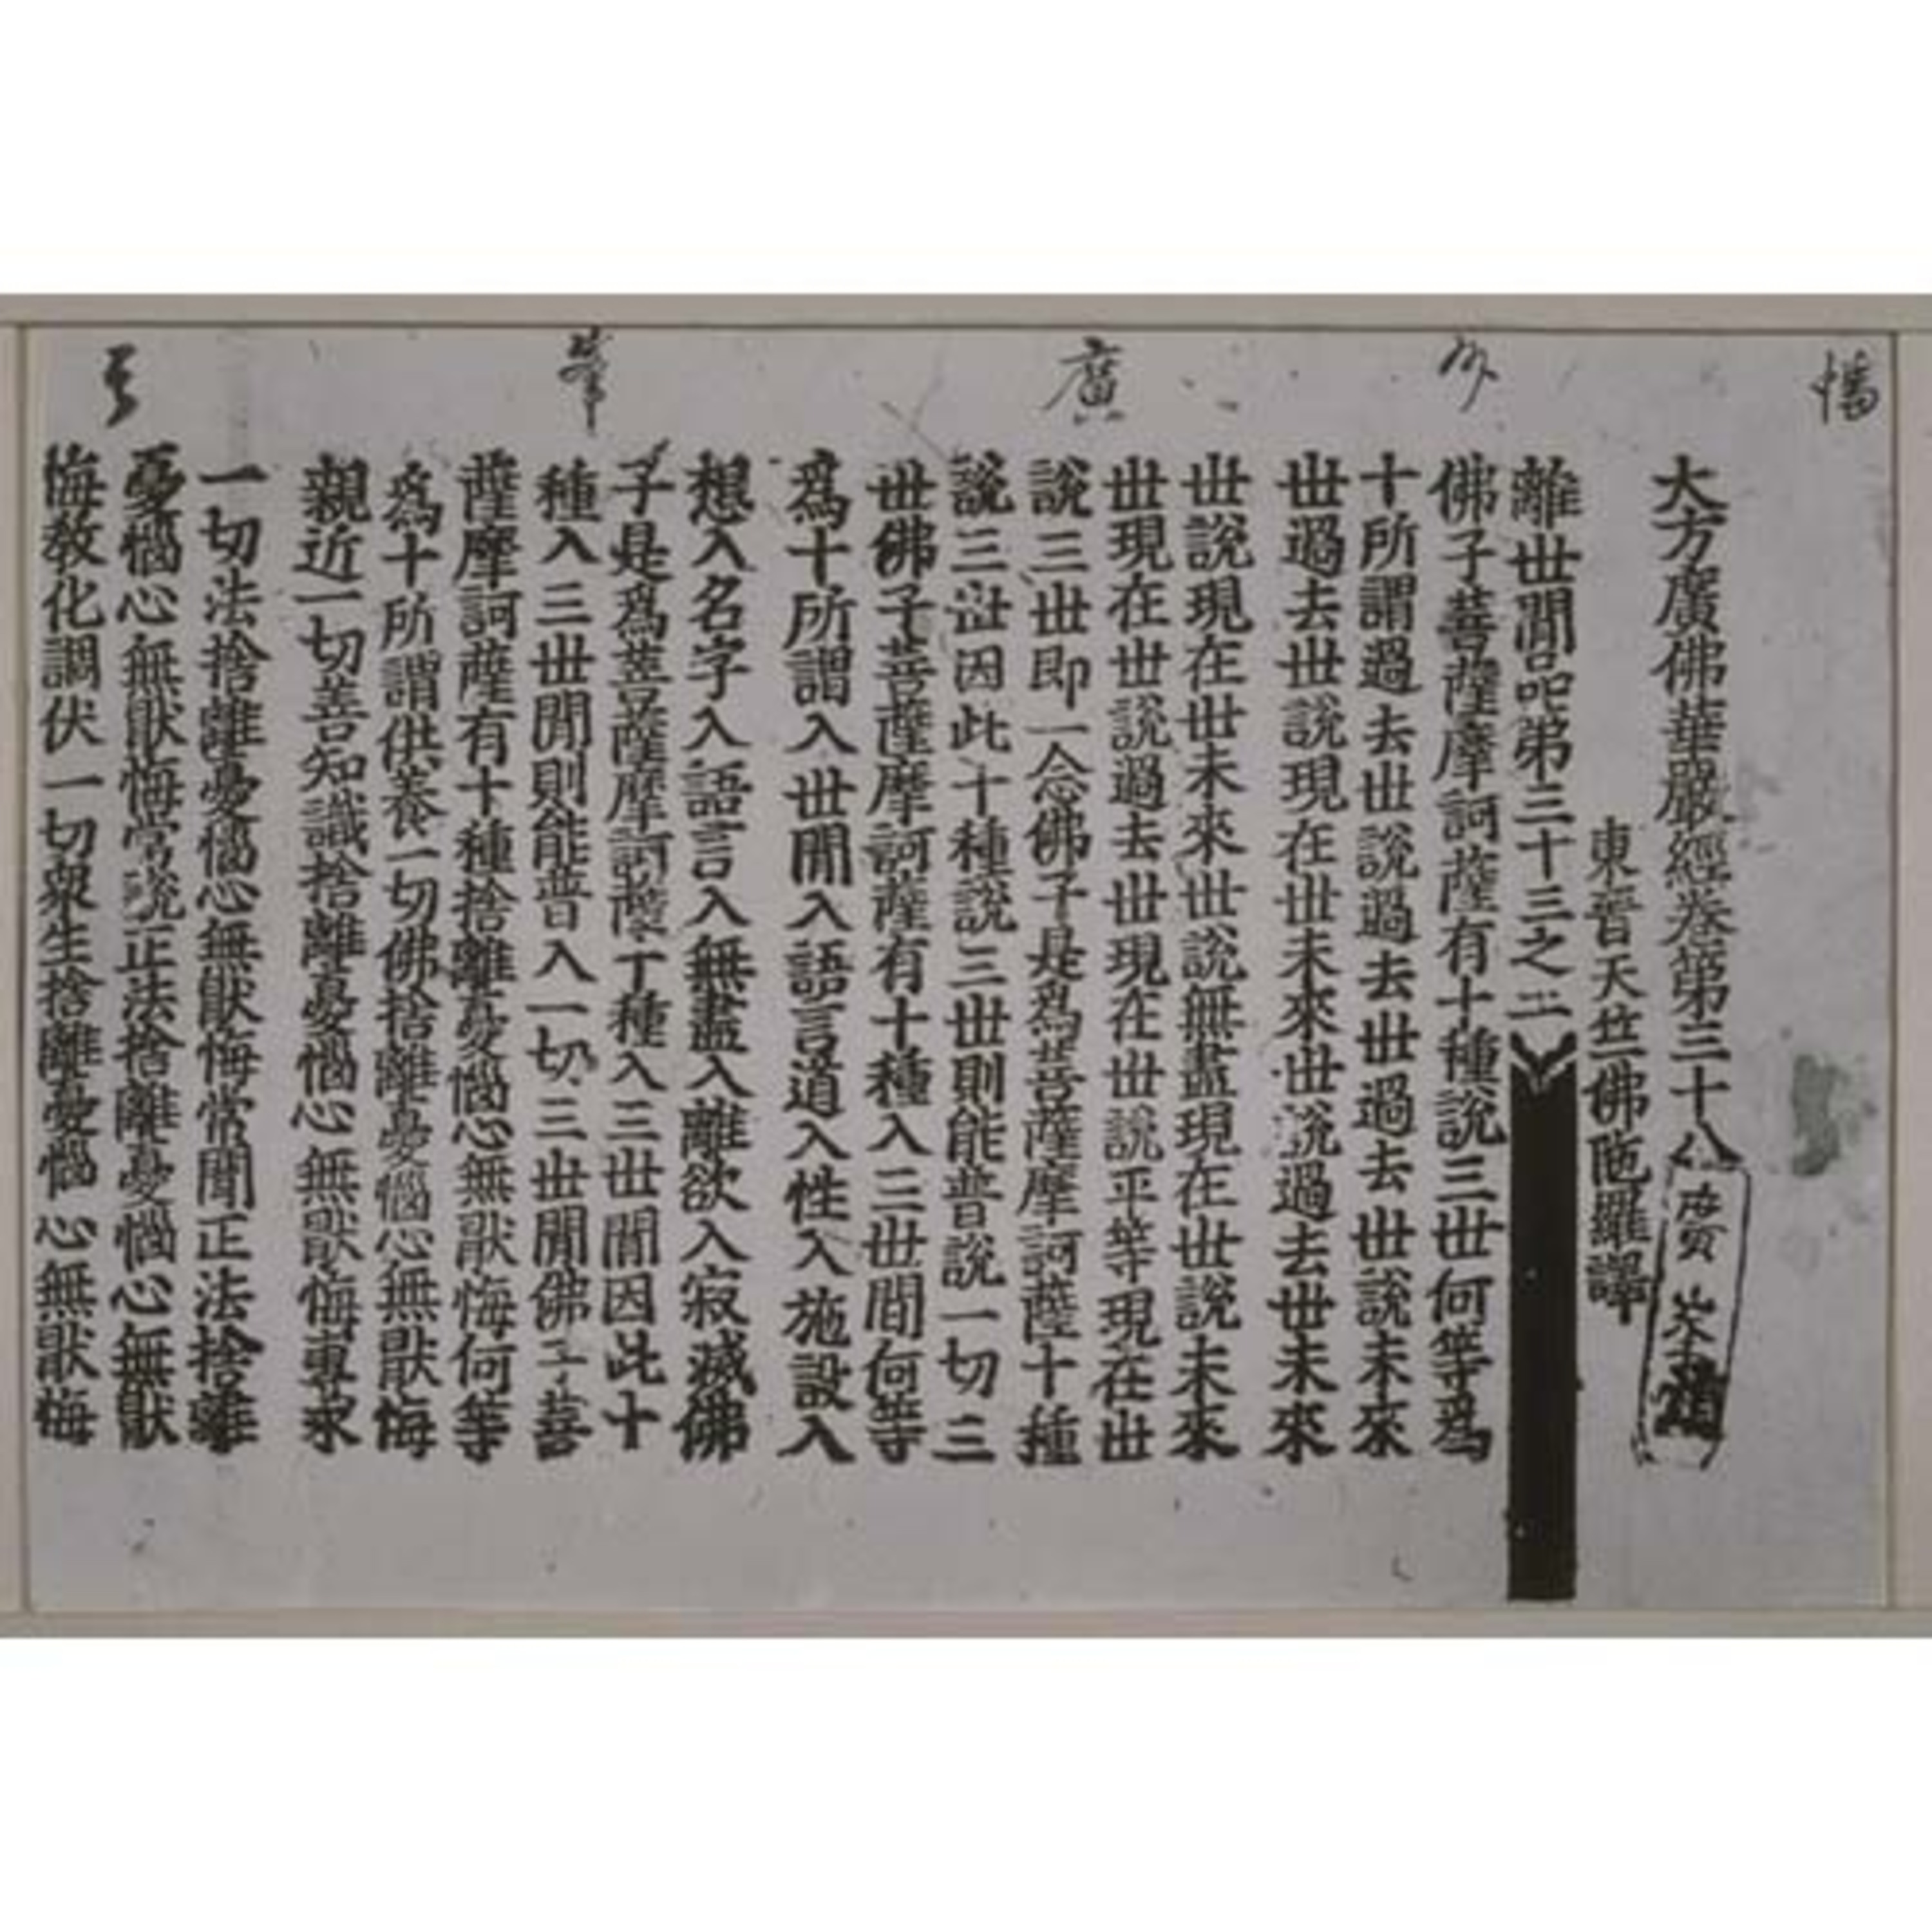 幡
廣
筆
大方廣佛華嚴經卷第三十八
東晉天竺三佛陁羅譯
離世間品第三十三之三
佛子菩薩摩訶薩有十種說三世何等爲
十所謂過去世說過去世過去世說未來
世過去世說現在世未來世說過去世未來
世說現在世未來世說無盡現在世說未來
世現在世說過去世現在世說平等現在世
說三世即一念佛子是爲菩薩摩訶薩十種
說三世因此十種說三世則能普說一切三
世佛子菩薩摩訶薩有十種入三世間何等
爲十所謂入世間入語言道入性入施設入
想入名字入語言入無盡入離欲入寂滅佛
子是爲菩薩摩訶薩十種入三世間因此十
種入三世間則能普入一切三世間佛子菩
薩摩訶薩有十種捨離憂惱心無猒悔何等
爲十所謂供養一切佛捨離憂惱心無猒悔
親近一切善知識捨離憂惱心無猒悔專求
一切法捨離憂惱心無猒悔常聞正法捨離
憂惱心無猒悔常說正法捨離憂惱心無猒
悔教化調伏一切衆生捨離憂惱心無猒悔